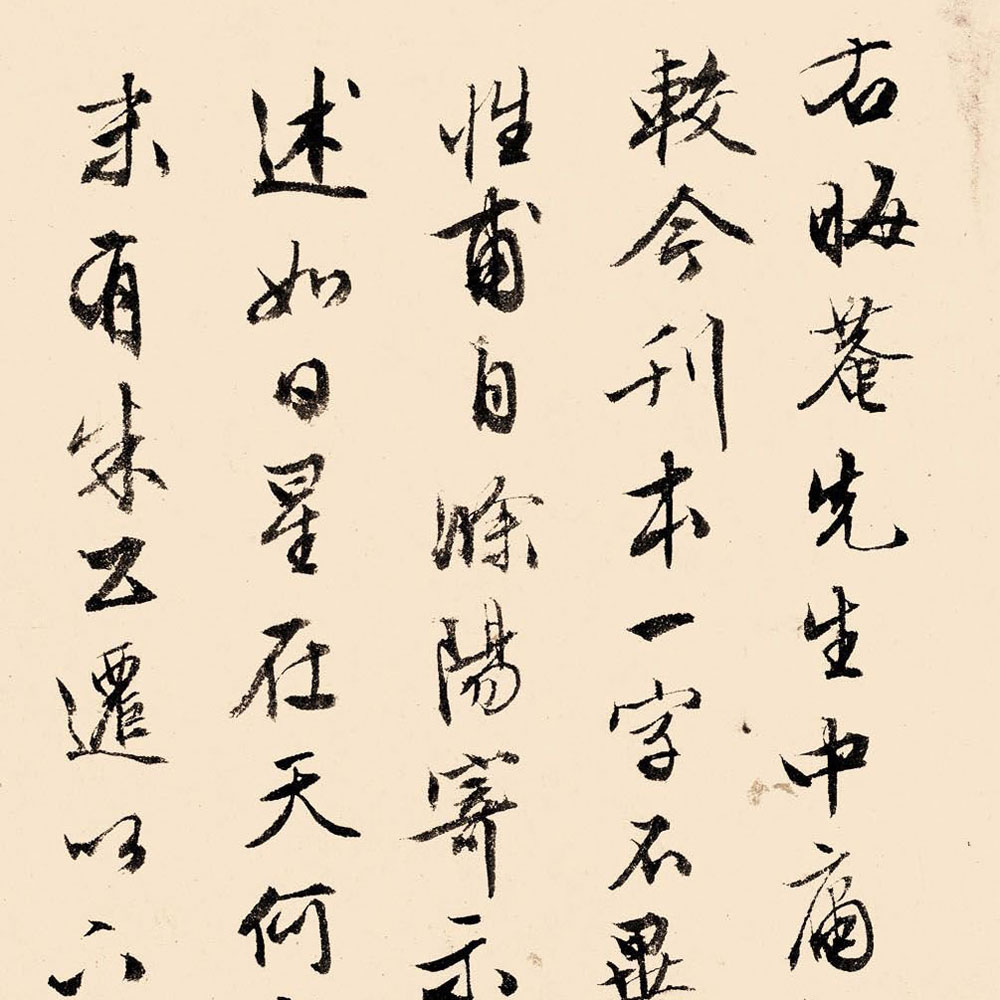 右晦菴先生中庸
較今刊本一字不異
性甫自滁陽寄示
述如日星在天何
末有朱公遷以